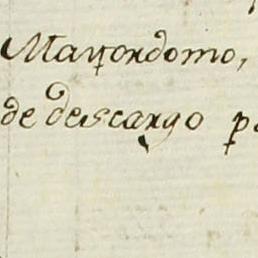 Mayordomo,
de descargo p